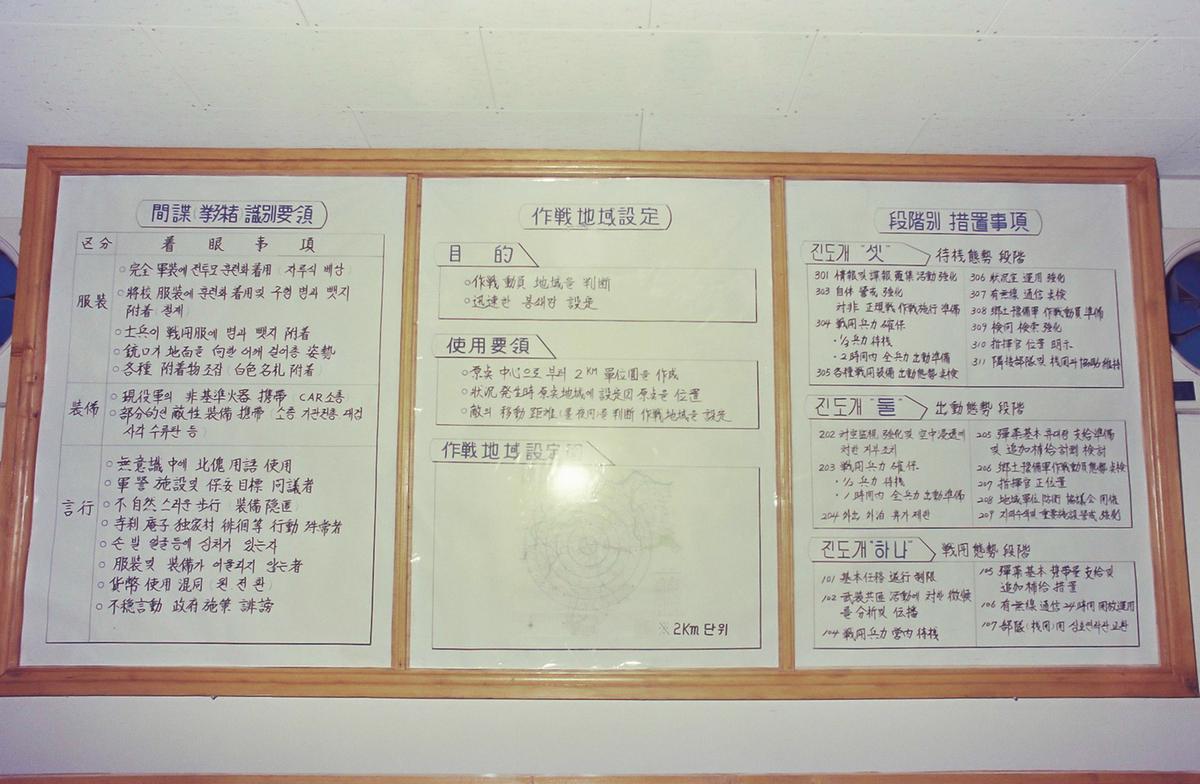 間諜 識別要領
区分 着眼事項
服装
○完全 軍装에 전투모 훈련화 着用
○將校 服装에 훈련화 着用및 구형 병과 뺏지
附着
○士兵이 戦用服에 병과 뺏지 附着
○銃口가 地面을 向한 어깨 걸어총 姿勢
○各種 附着物 조잡 (白色名札 附着)
装備
○現役軍의 非基準火器 携帯 CAR소총
○部分的인 敵性装備 携帯 (소총 기관전총 대검
사각 수류탄 등)
言行
○無意識中에 北傀 用話 使用
○軍警 施設및 保安目標 問議者
○不自然스러운 步行 (装備 隠匿)
○寺刹 庵子 独家村 徘徊等 行動 殊常者
○손 발 얼굴등에 상처가 있는자
○服装및 装備가 어울리지 않는者
○貨幣 使用 混同 (원 전 환)
○不穏言動 政府 施策 誹謗
作戦地域設定
目的
○作戦動員 地域을 判断
○迅速한 봉쇄망 設定
使用要領
○原点 中心으로 부터 2KM 單位圓을 作成
○状況 発生時 原点地域에 設定因 原点을 位置
○敵의 移動 距離 를 判断 作戦地域을 設定
作戦地域設定
※ 2Km 단위
段階別 措置事項
진도개 "셋" 待機態勢 段階
301 情報및 諜報 蒐集活動 強化
303 自体 警戒 強化
対非 正規戦作戦施行 準備
304 戦闘兵力 確保
・½兵力 待機
・2時間内 全兵力 出動準備
305 各種戦闘装備 出動態勢 点検
306 状況室 運用 強化
307 有無線 通信 点検
308 郷土豫備軍 作戦動員 準備
309 検問 検索 強化
310 指揮官 位置 明示
311 隣接部隊및 機関과 協助 維持
진도개 "둘" 出動態勢 段階
202 対空監視 強化및 空中浸透에
대한
203 戦闘兵力 確保
・½兵力 待機
・1時間内 全兵力 出動準備
204 外出 外泊 휴가 제한
205 彈薬基本휴대량 支給準備
및 追加補給計劃 検討
206 郷土豫備軍作戦動員態勢 点検
207 指揮官 正位置
208 地域單位 防衛 協議会 開催
209
진도개 "하나" 戦闘態勢 段階
101 基本任務 遂行 制限
102 武装共匪 活動에 対한 徴候
를 分析및 伝播
104 戦闘兵力 営内 待機
105 彈薬基本 携帯量 支給및
追加補給 措置
106 有無線 通信 24時間 開放運用
107 部隊(機関)間 상호연락관 교환